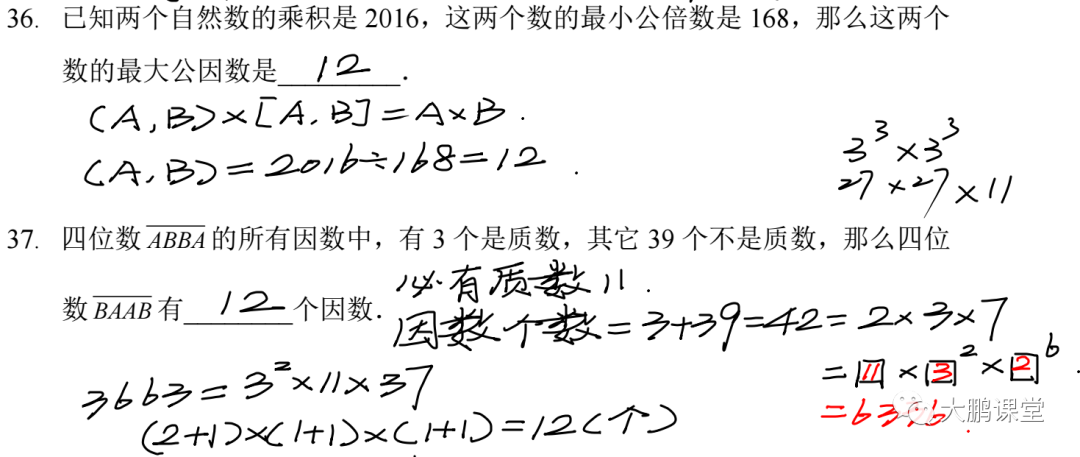 36. 已知两个自然数的乘积是 2016，这两个数的最小公倍数是 168，那么这两个
数的最大公因数是 12 .
(A,B)×[A,B]=A×B.
(A,B)=2016÷168=12.
3³×3³
27×27×11
37. 四位数 ABBA 的所有因数中，有 3 个是质数，其它 39 个不是质数，那么四位
数 BAAB 有 12 个因数.
必有质数11.
因数个数=3+39=42=2×3×7
=11×3²×2⁶.
=6336.
3663=3²×11×37
(2+1)×(1+1)×(1+1)=12(个)
大鹏课堂